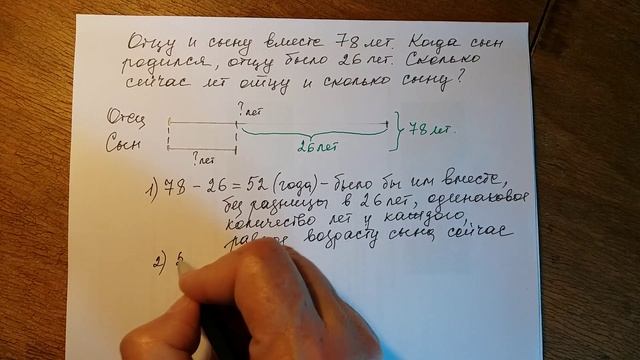 Отцу и сыну вместе 78 лет. Когда сын
родился, отцу было 26 лет. Сколько
сейчас лет отцу и сколько сыну?
? лет
Отец
26 лет
78 лет.
Сын
? лет
1) 78 - 26 = 52 (года) - было бы им вместе,
без разницы в 26 лет, одинаковое
количество лет у каждого,
равное возрасту сына сейчас
2) 5